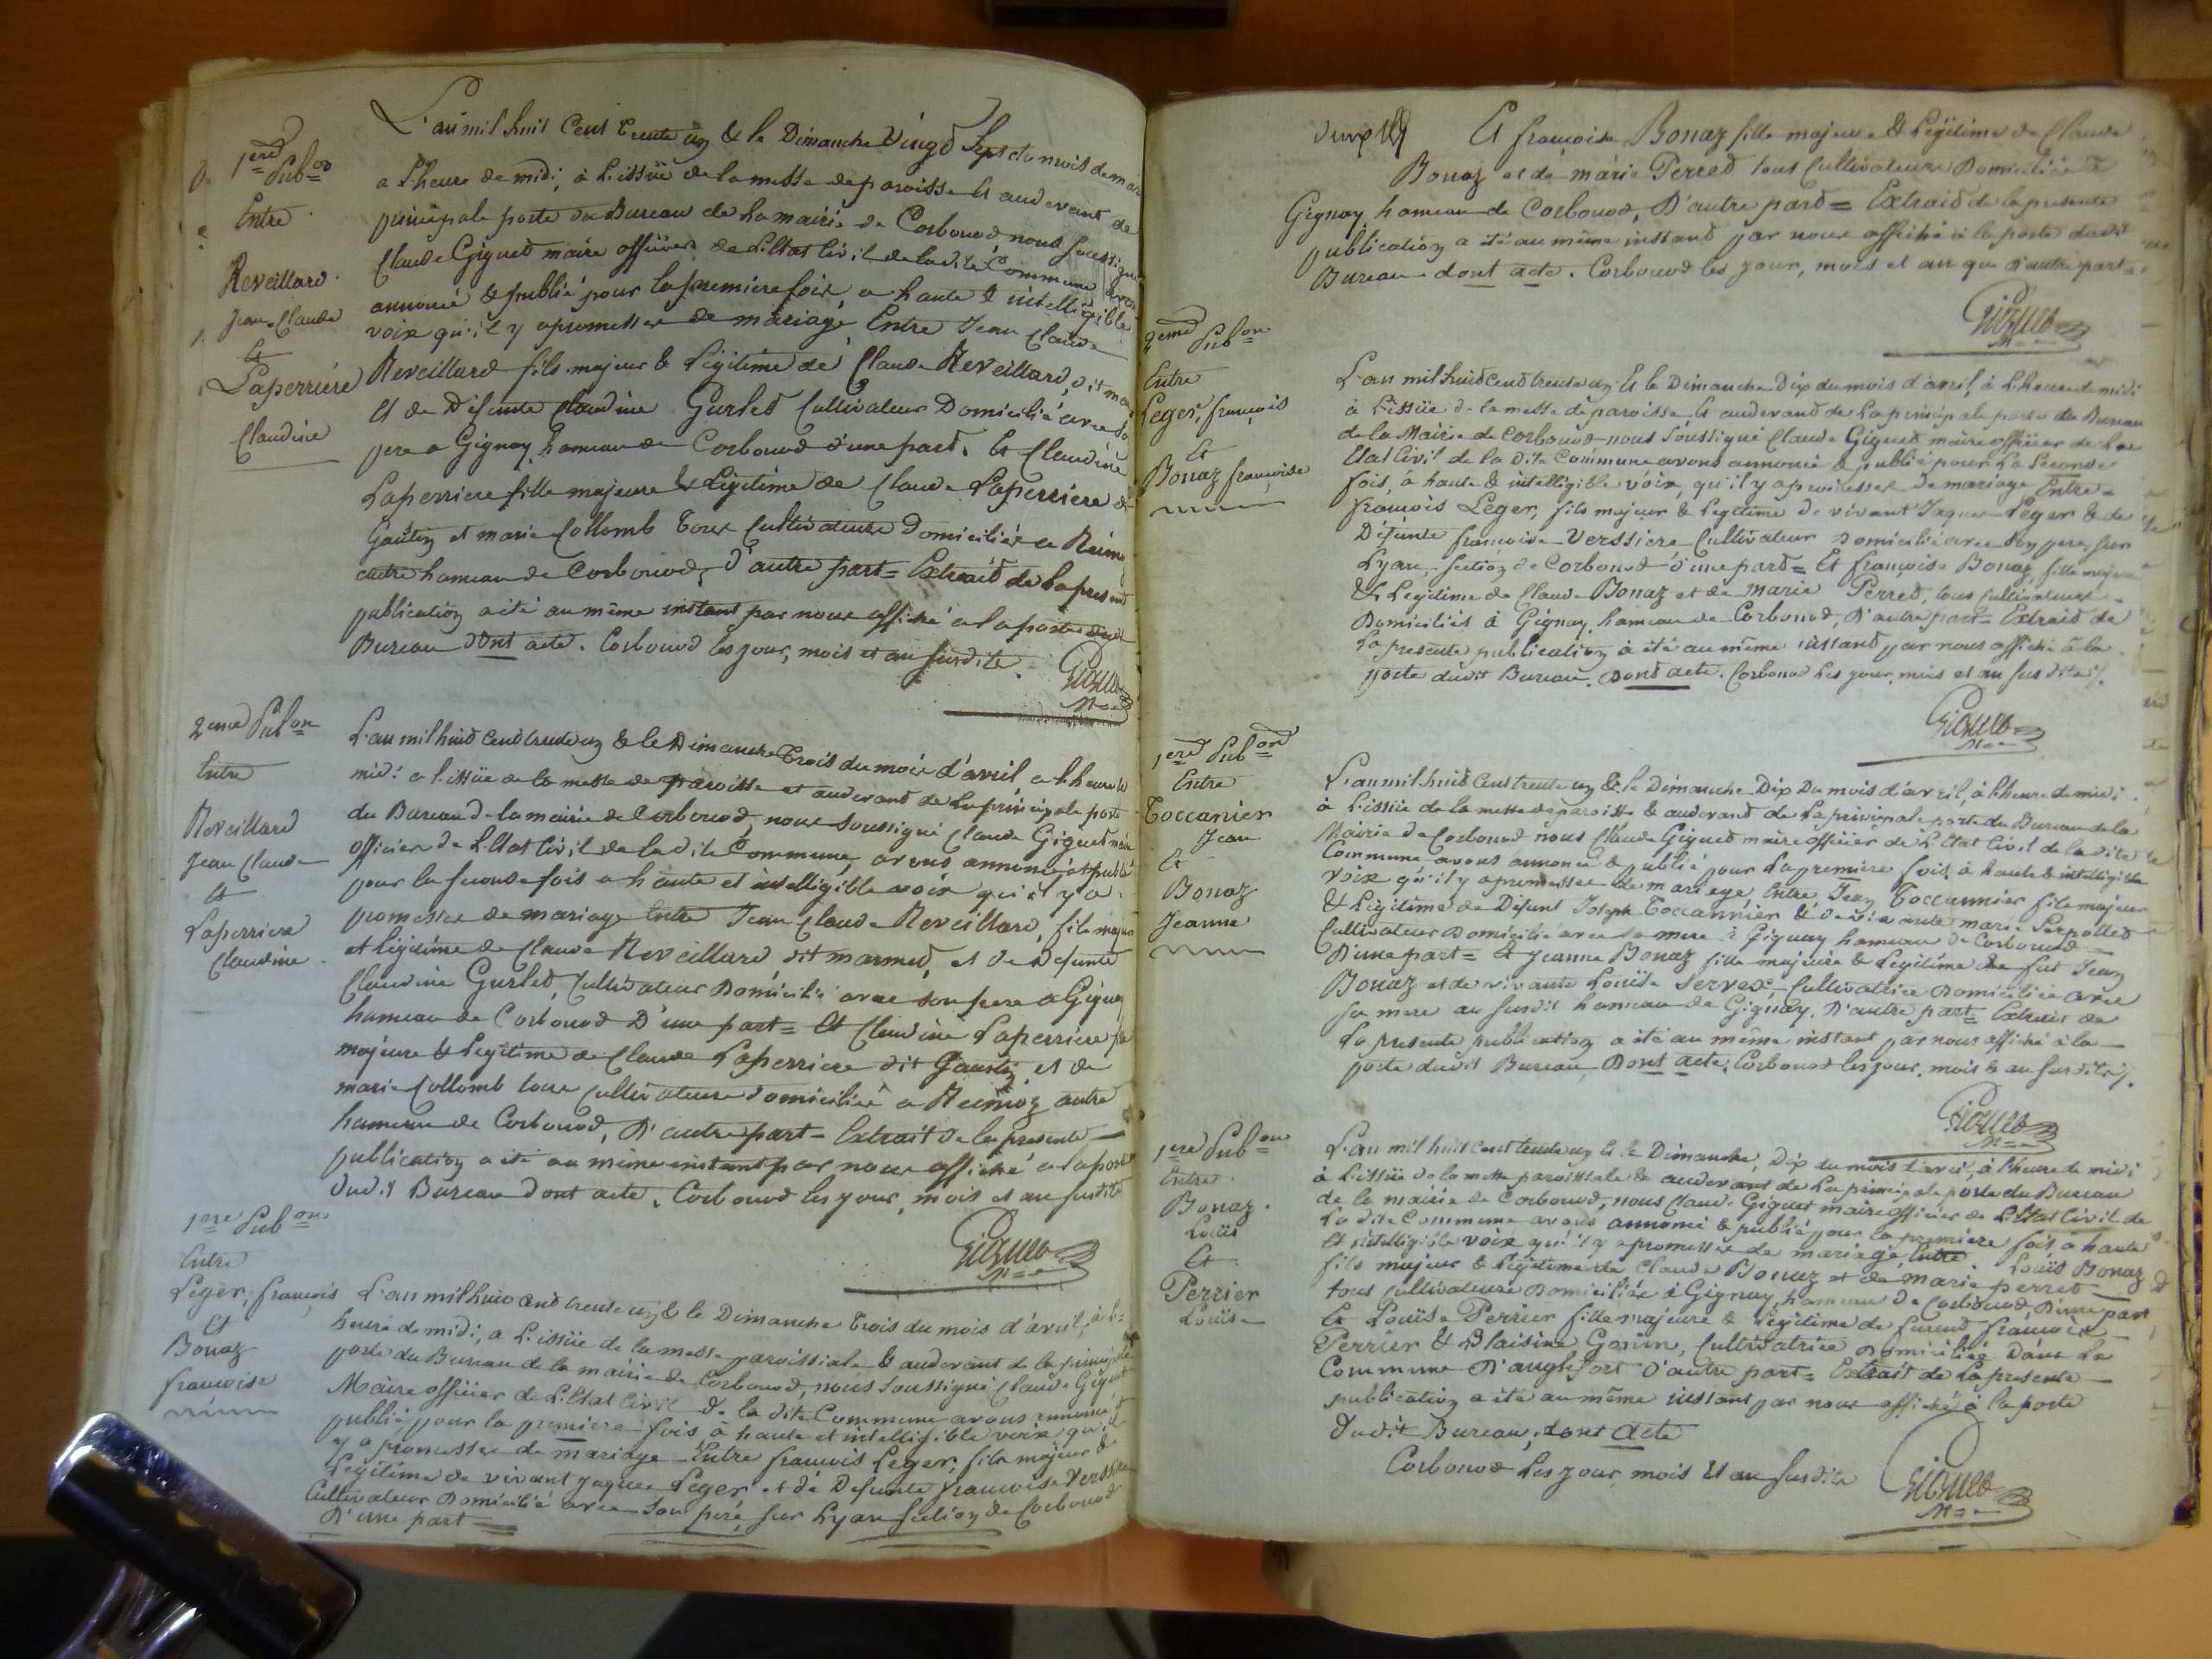 1ere Pub=on
Entre
Reveillard
Jean-Claude
Et
Laperriére
Claudine
L'an mil huit Cent trente un & le Dimanche Vingt Sept du mois de mars
a l'heure de midi, à L'issüe de la messe de paroisse Et au devant de
principale porte du Bureau de la mairie de Corbonod nous soussigné
Claude Gigued maire officier de L'Etat Civil de la dite Commune avons
annoncé & publié pour la premiere fois, a haute & intelligible
voix qu'il y a promesses de mariage, Entre Jean Claude
Reveillard fils majeur & Légitime de Claude Reveillard, dit
Et de Défunte Claudine Gurled Cultivateur Domicilié avec so
pere a Gignay hameau de Corbonod d'une part. Et Claudine
Laperriere fille majeure & Légitime de Claude Laperriere d
Gautin et marie Collomb tous Cultivateurs Domiciliés a
autre hameau de Corbonod, D'autre part = Extraid de la present
publication a été au même instant par nous affiché a la porte dudit
Bureau dont acte. Corbonod les jour, mois et an susdits.
Gigued
M=e
2eme Pub=on
Entre
Reveillard
Jean Claude
Et
Laperriere
Claudine
L'an mil huid cend trente un & le Dimanche Trois du mois d'avril a l'heure de
midi a l'issüe de la messe de paroisse et au devand de la principale porte
du Bureau de la mairie de Corbonod, nous soussigné Claude Gigued maire
officier de L'Etat Civil de la dite Commune, avons annoncé et publié
pour la seconde fois a haute et intelligible voix qu'il y a
promesses de mariage Entre Jean Claude Reveillard, fils majeur
et légitime de Claude Reveillard dit marmed, et de Defunte
Claudine Gurled, Cultivateur Domicilié avec son pere a Gignay
hameau de Corbonod D'une part = Et Claudine Laperriere fille
majeure & Legitime de Claude Laperriere dit Gautin et de
marie Collomb tous Cultivateurs domiciliés a autre
hameau de Corbonod, D'autre part = Extrait de la presente
publication a été au même instant par nous affiché a la porte
dudit Bureau dont acte, Corbonod les jour, mois et an susdits
Gigued
M=e
1ere Pub=on
Entre
Leger, françois
Et
Bonaz
françoise
L'an mil huit cend trente un & le Dimanche Trois du mois d'avril, à l'
heure de midi, a L'issüe de la messe paroissiale & au devant de la principale
porte du Bureau de la mairie de Corbonod, nous soussigné Claude Gigued
Maire officier de L'Etat Civil de la dite Commune avons annoncé &
publié pour la premiere fois à haute et intelligible voix qu'il
y a promesses de mariage Entre françois Leger, fils majeur &
Legitime de vivant Jaques Leger et de Defunte françoise Verssiere
Cultivateur Domicilié avec Son peré, sur Lyan section de Corbonod
D'une part =
Et françoise Bonaz fille majeure & Légitime de Claude
Bonaz et de màrie Perred tous Cultivateurs Domiciliés à
Gignay hameau de Corbonod, D'autre pard = Extraid de la presente
publication a été au même instand par nous affiché à la porte dudit
Bureau dont acte. Corbonod les jour, mois et an que d'autre part =
Gigued
M=e
2eme Pub=on
Entre
Leger, françois
Et
Bonaz françoise
L'an mil huid cend trente un Et le Dimanche Dix du mois d'avril, à L'heure de midi
à L'issüe de la messe de paroisse & au devand de la principale porte du Bureau
de la Mairie de Corbonod nous soussigné Claude Gigued maire officier de L'
Etat Civil de la Dite Commune avons annoncé & publié pour la Seconde
fois, à haute & intelligible voix, qu'il y a promesses de mariage Entre =
françois Leger, fils majeur & Legitime de vivant Jaques Leger & de
Défunte françoise Verssiere Cultivateur domicilié avec son pere, sur
Lyan, section de Corbonod d'une pard = Et françoise Bonaz, fille majeure
& Legitime de Claude Bonaz et de marie Perred, tous Cultivateurs
Domiciliés à Gignay, hameau de Corbonod, D'autre part = Extraid de
La presente publication à été au même instand par nous affiché à la
porte dudit Bureau, Dond acte. Corbonod les jour, mois et an susdits /.
Gigued
M=e
1ere Pub=on
Entre
Toccanier
Jean
Et
Bonaz
Jeanne
L'an mil huid Cent trente un & le Dimanche Dix Du mois d'avril, à l'heure de midi
à L'issüe de la messe de paroisse & au devand de La principale porte du Bureau de la
Mairie de Corbonod nous Claude Gigued maire officier de L'Etat Civil de la dite
Commune avons annoncé & publié pour La premiere fois, à haute & intelligible
voix qu'il y a promesses de mariage, Entre Jean Toccannier fils majeur
& Légitime de Défunt Joseph Toccannier & de vivante marie
Cultivateur Domicilié avec sa mere à Gignay hameau de Corbonod
D'une part = Et Jeanne Bonaz fille majeure & Légitime de fut Jean
Bonaz et de vivante Louïse Servex, Cultivatrice Domiciliée avec
sa mere au susdit hameau de Gignay. D'autre part = Extrait de
La presente publication a été au même instant par nous affiché à la
porte dudit Bureau, Dont acte, Corbonod les jour, mois & an susdits /.
Gigued
M=e
1ere Pub=on
Entre
Bonaz
Loüis
Et
Perrier
Loüise
L'an mil huit cent trente un & le Dimanche, Dix du mois d'avril, à l'heure de midi
à L'issüe de la messe paroissiale & au devant de la principale porte du Bureau
de la mairie de Corbonod, nous Claude Gigued maire officier de L'Etat Civil de
La dite Commune avons annoncé & publié pour la premiere fois à haute
Et intelligible voix qu'il y a promesses de mariage, Entre Loüis Bonaz
fils majeur & Légitime de Claude Bonaz et de marie perred
tous Cultivateurs Domiciliés à Gignay, hameau de Corbonod, D'une part
Et Louïse Perrier fille majeure & Legitime de françois
Perrier & Blaisine Gonin, Cultivatrice Domiciliée Dans La
Commune D'anglefort d'autre part = Extrait de La presente
publication a été au même instant par nous affiché à la porte
dudit Bureau, dont acte
Corbonod les jour, mois Et an susdits
Gigued
M=e